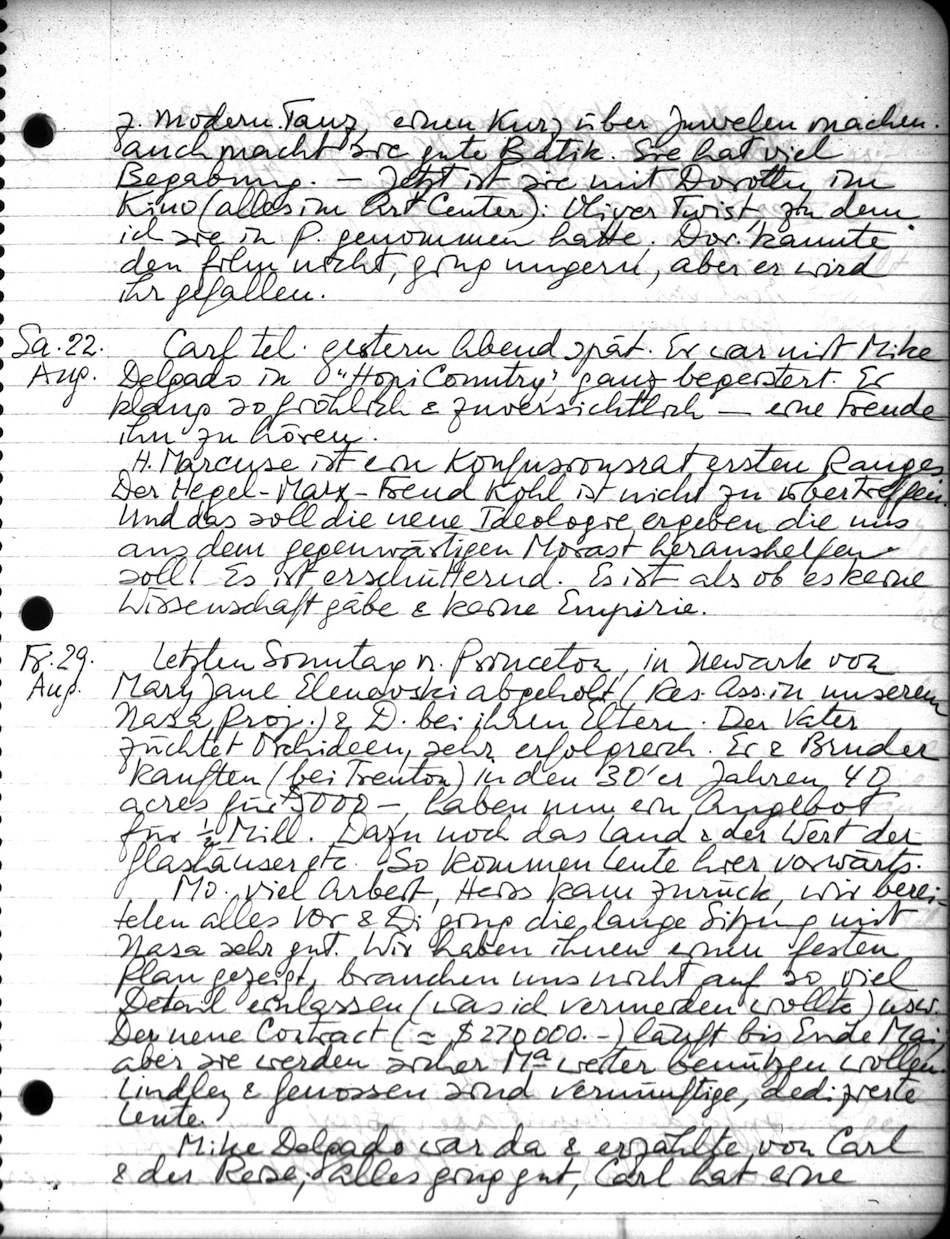 z. modern. Tanz, einen Kurz über Juwelen machen.
auch macht sie gute Batik. Sie hat viel
Begabung. — Jetzt ist sie mit Dorothy im
Kino (alles im Art Center): Oliver Twist, zu dem
ich sie in P. genommen hatte. Dor. kannte
den Film nicht, ging ungern, aber er wird
ihr gefallen.
Sa. 22. Carl tel. gestern Abend spät. Er war mit Mike
Aug. Delgado in "Hopi Country", ganz begeistert. Er
klang so fröhlich & zuversichtlich — eine Freude
ihn zu hören.
H. Marcuse ist ein Konfusionsrat ersten Ranges.
Der Hegel-Marx-Freud Kohl ist nicht zu übertreffen.
Und das soll die neue Ideologie ergeben die uns
aus dem gegenwärtigen Morast heraushelfen
soll! Es ist erschütternd. Es ist als ob es keine
Wissenschaft gäbe & keine Empirie.
Fr. 29. Letzten Sonntag n. Princeton, in Newark von
Aug. Mary Jane Elenavski abgeholt, (Res. Ass. in unserem
Nasa Proj.) & D. bei ihren Eltern. Der Vater
züchtet Orchideen, sehr erfolgreich. Er & Bruder
kauften (bei Trenton) in den 30'er Jahren 40
acres für $5000 –, haben nun ein Angebot
für ½ Mill. Dazu noch das Land & der Wert der
Glashäuser etc. So kommen Leute hier vorwärts.
Mo. viel Arbeit, Heiss kam zurück, wir berei-
teten alles vor & Di ging die lange Sitzung mit
Nasa sehr gut. Wir haben ihnen einen festen
Plan gezeigt, brauchen uns nicht auf so viel
Detail einlassen (was ich vermeiden wollte) usw.
Der neue Contract (= $270 000.–) läuft bis Ende Mai,
aber sie werden sicher Ma weiter benützen wollen.
Lindley & Genossen sind vernünftige, dedizierte
Leute.
Mike Delgado war da & erzählte von Carl
& der Reise, alles ging gut, Carl hat eine